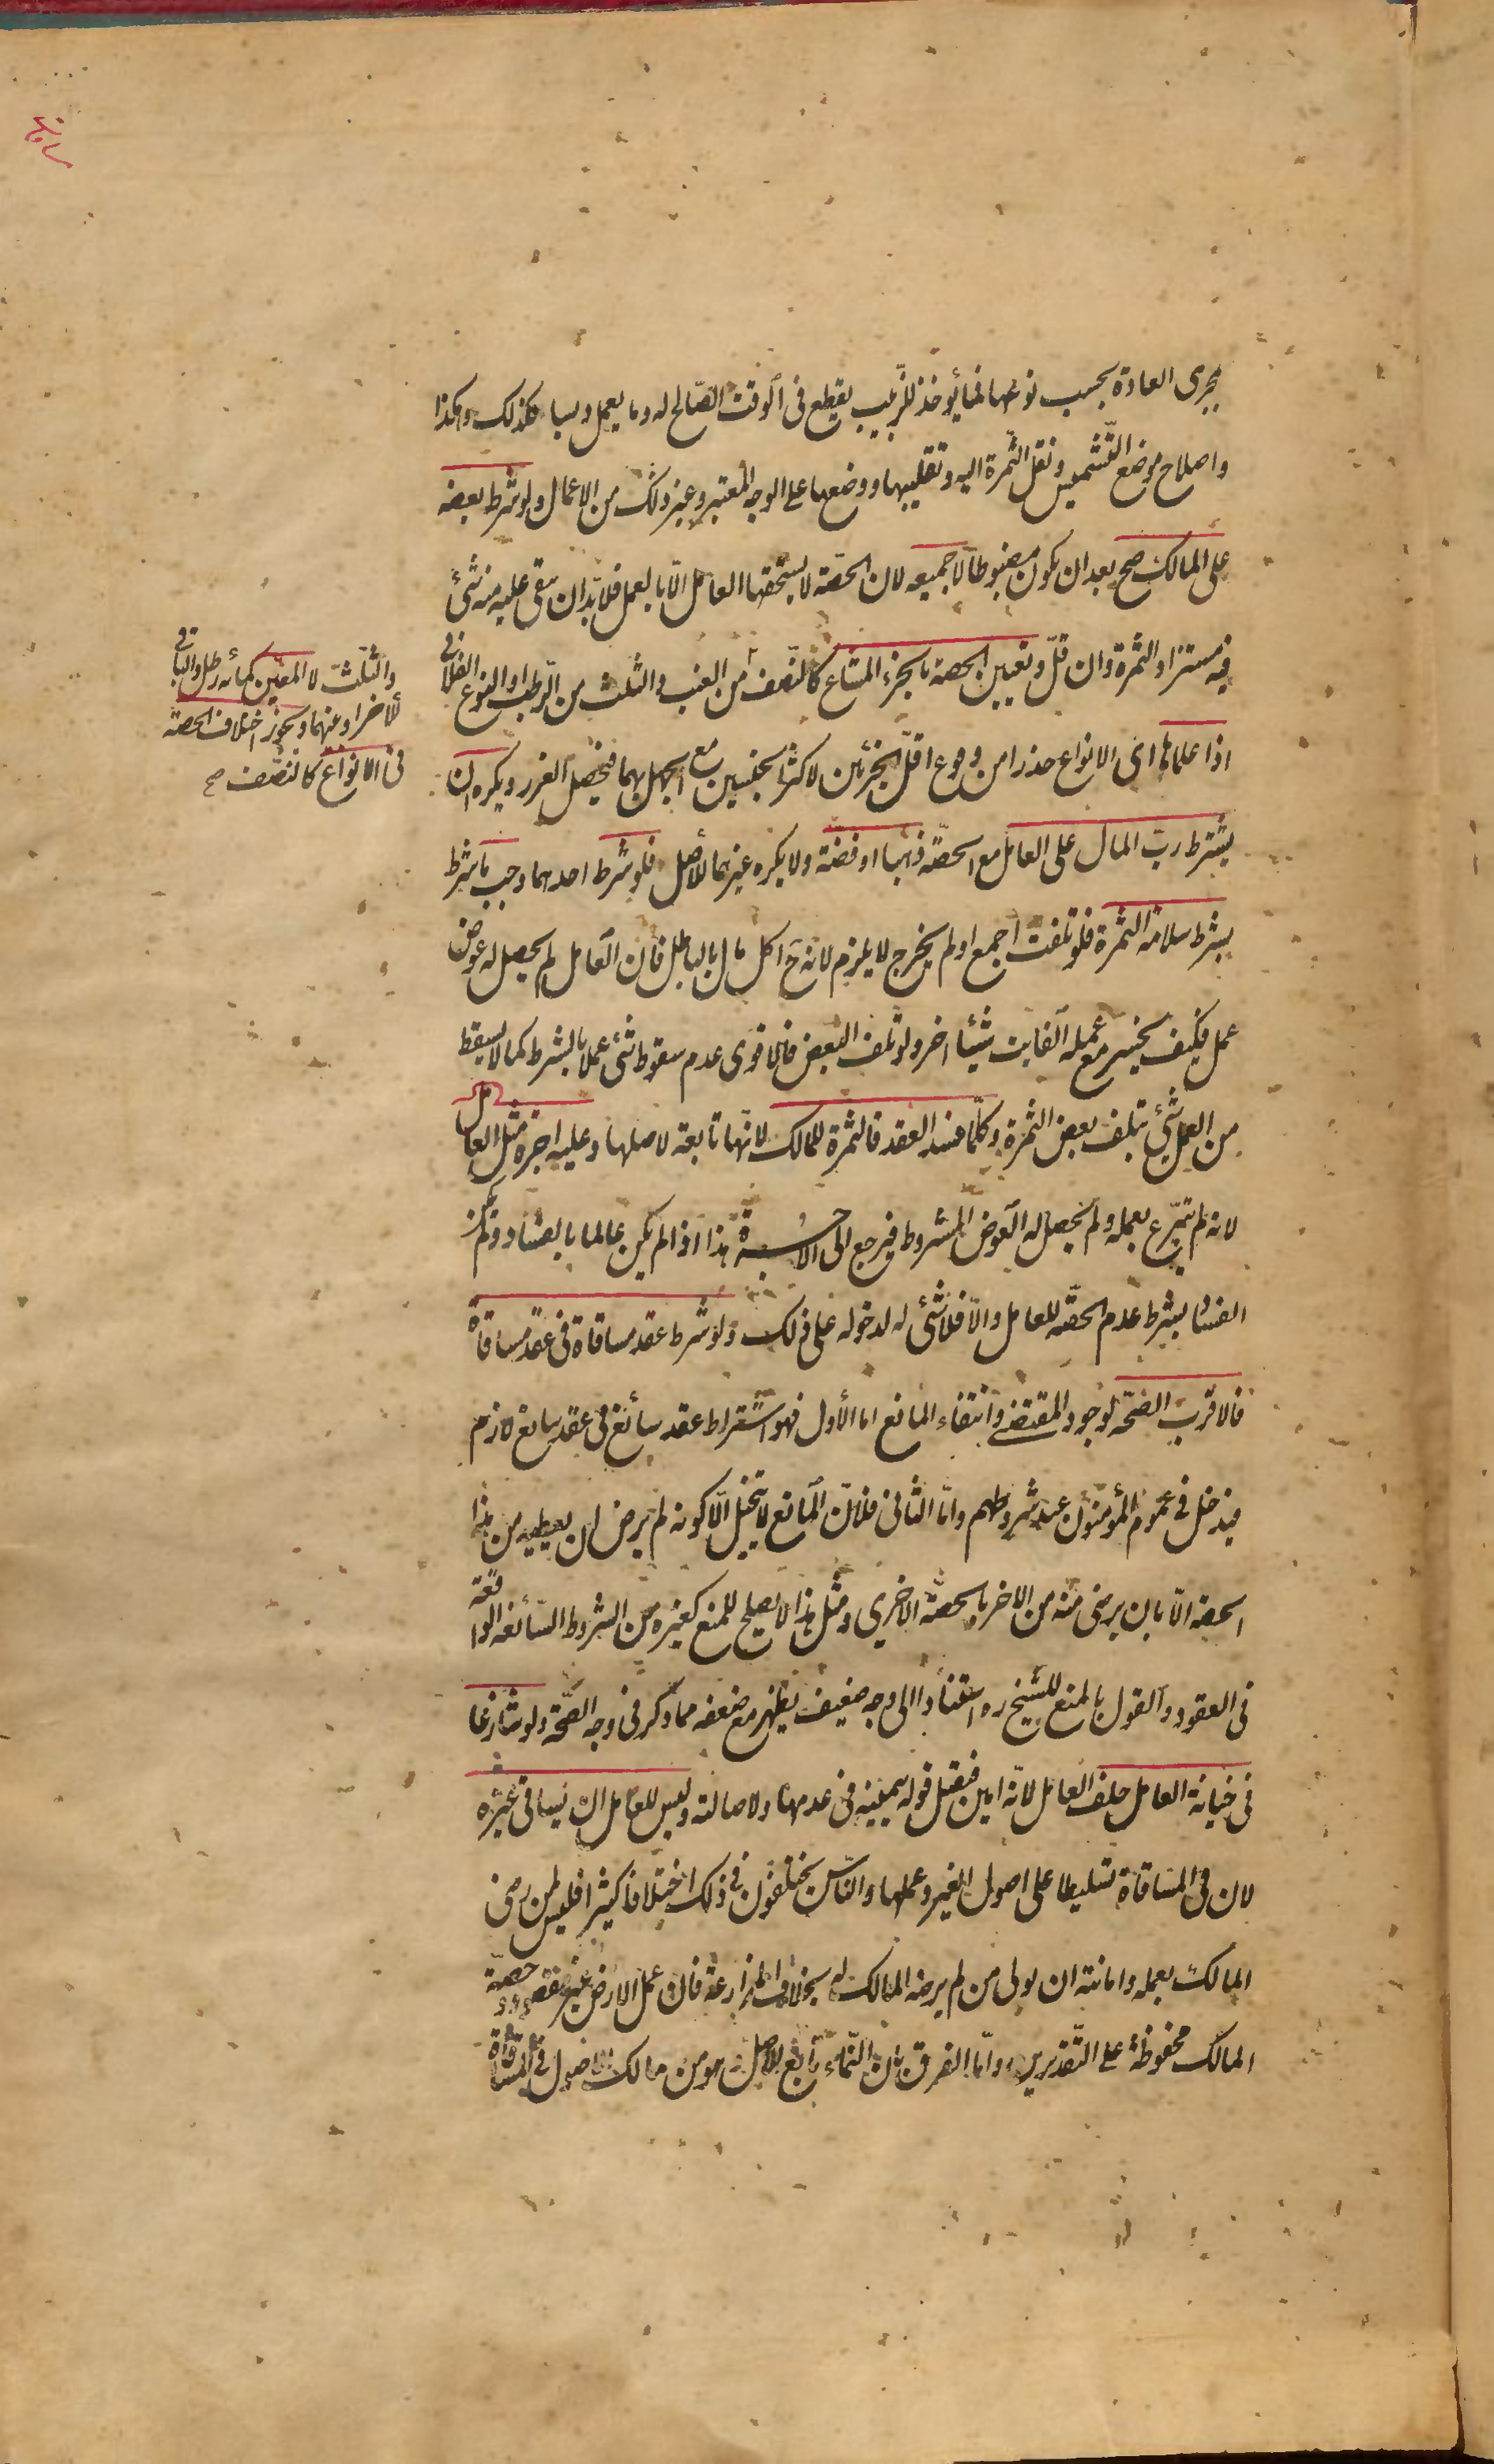 مجرى العادة بحسب نوعها فما يؤخذ للزبيب يقطع فى الوقت الصالح له وما يعمل دبسا فكذلك وهكذا
واصلاح موضع التشميس ونقل الثمرة اليه وتقليبها ووضعها على الوجه المعتبر وغير ذلك من الاعمال ولو شرط بعضه
على المالك صح بعد ان يكون مضبوطا لا جميعه لان الحصة لا يستحقها العامل الا بالعمل فلا بد ان يبقى عليه منه شئ
فيه مستزاد الثمرة وان قل وتعيين الحصة بالجزء المشاع كالنصف من العنب والثلث من الرطب او النوع الفلانى
والثلث لا المعين كمائة رطل والباقى
للآخر او عنهما ويجوز اختلاف الحصة
فى الانواع كالنصف صح
اذا علماها اى الانواع حذرا من وقوع اقل الجزئين لاكثر الجنسين مع الجهل بهما فيحصل الغرر ويكره ان
يشترط رب المال على العامل مع الحصة ذهبا او فضة ولا يكره غيرهما للأصل فلو شرط احدهما وجب ما شرط
بشرط سلامة الثمرة فلو تلفت اجمع او لم يخرج لا يلزم لانه ح اكل مال بالباطل فان العامل لم يحصل له عوض
عمل فكيف يخسر مع عمله الفايت شيئا اخر ولو تلف البعض فالاقوى عدم سقوط شئ عملا بالشرط كما لا يسقط
من العمل شئ بتلف بعض الثمرة وكلما فسد العقد فالثمرة للمالك لانها تابعة لاصلها وعليه اجرة مثل العامل
لانه لم يتبرع بعمله ولم يحصل له العوض المشروط فيرجع الى الاجرة هذا اذا لم يكن عالما بالفساد ولم يكن
الفساد بشرط عدم الحصة للعامل والا فلا شئ له لدخوله على ذلك ولو شرط عقد مساقاة فى عقد مساقاة
فالاقرب الصحة لوجود المقتضى وانتفاء المانع اما الأول فهو اشتراط عقد سائغ فى عقد سايغ لازم
فيدخل فى عموم المؤمنون عند شروطهم واما الثانى فلان المانع لا يتخيل الا كونه لم يرض ان يعطيه من هذا
الحصة الا بان يرضى منه من الاخر بالحصة الاخرى ومثل هذا لا يصلح للمنع كغيره من الشروط السائغة الواقعة
فى العقود والقول بالمنع للشيخ ره استنادا الى وجه ضعيف يظهر مع ضعفه مما ذكر فى وجه الصحة ولو تنازعا
فى خيانة العامل حلف العامل لانه امين فيقبل قوله بيمينه فى عدمها ولاصالته وليس للعامل ان يساقى غيره
لان فى المساقاة تسليطا على اصول الغير وعملها والناس يختلفون فى ذلك اختلافا كثيرا فليس لمن رضى
المالك بعمله وامانته ان يولى من لم يرضه المالك له بخلاف المزارعة فان عمل الارض غير مقصود وحصة
المالك محفوظة على التقديرين واما الفرق بان النماء تابع للاصل وهو من مالك الاصول فى المساقاة